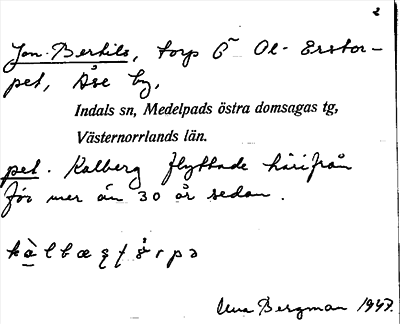 2
Jon-Bertils, torp på Ol-Erstor-
pet, Åse by,
Indals sn, Medelpads östra domsagas tg,
Västernorrlands län.
pet. Kalberg flyttade härifrån
för mer än 30 år sedan.
Una Bergman 1947.